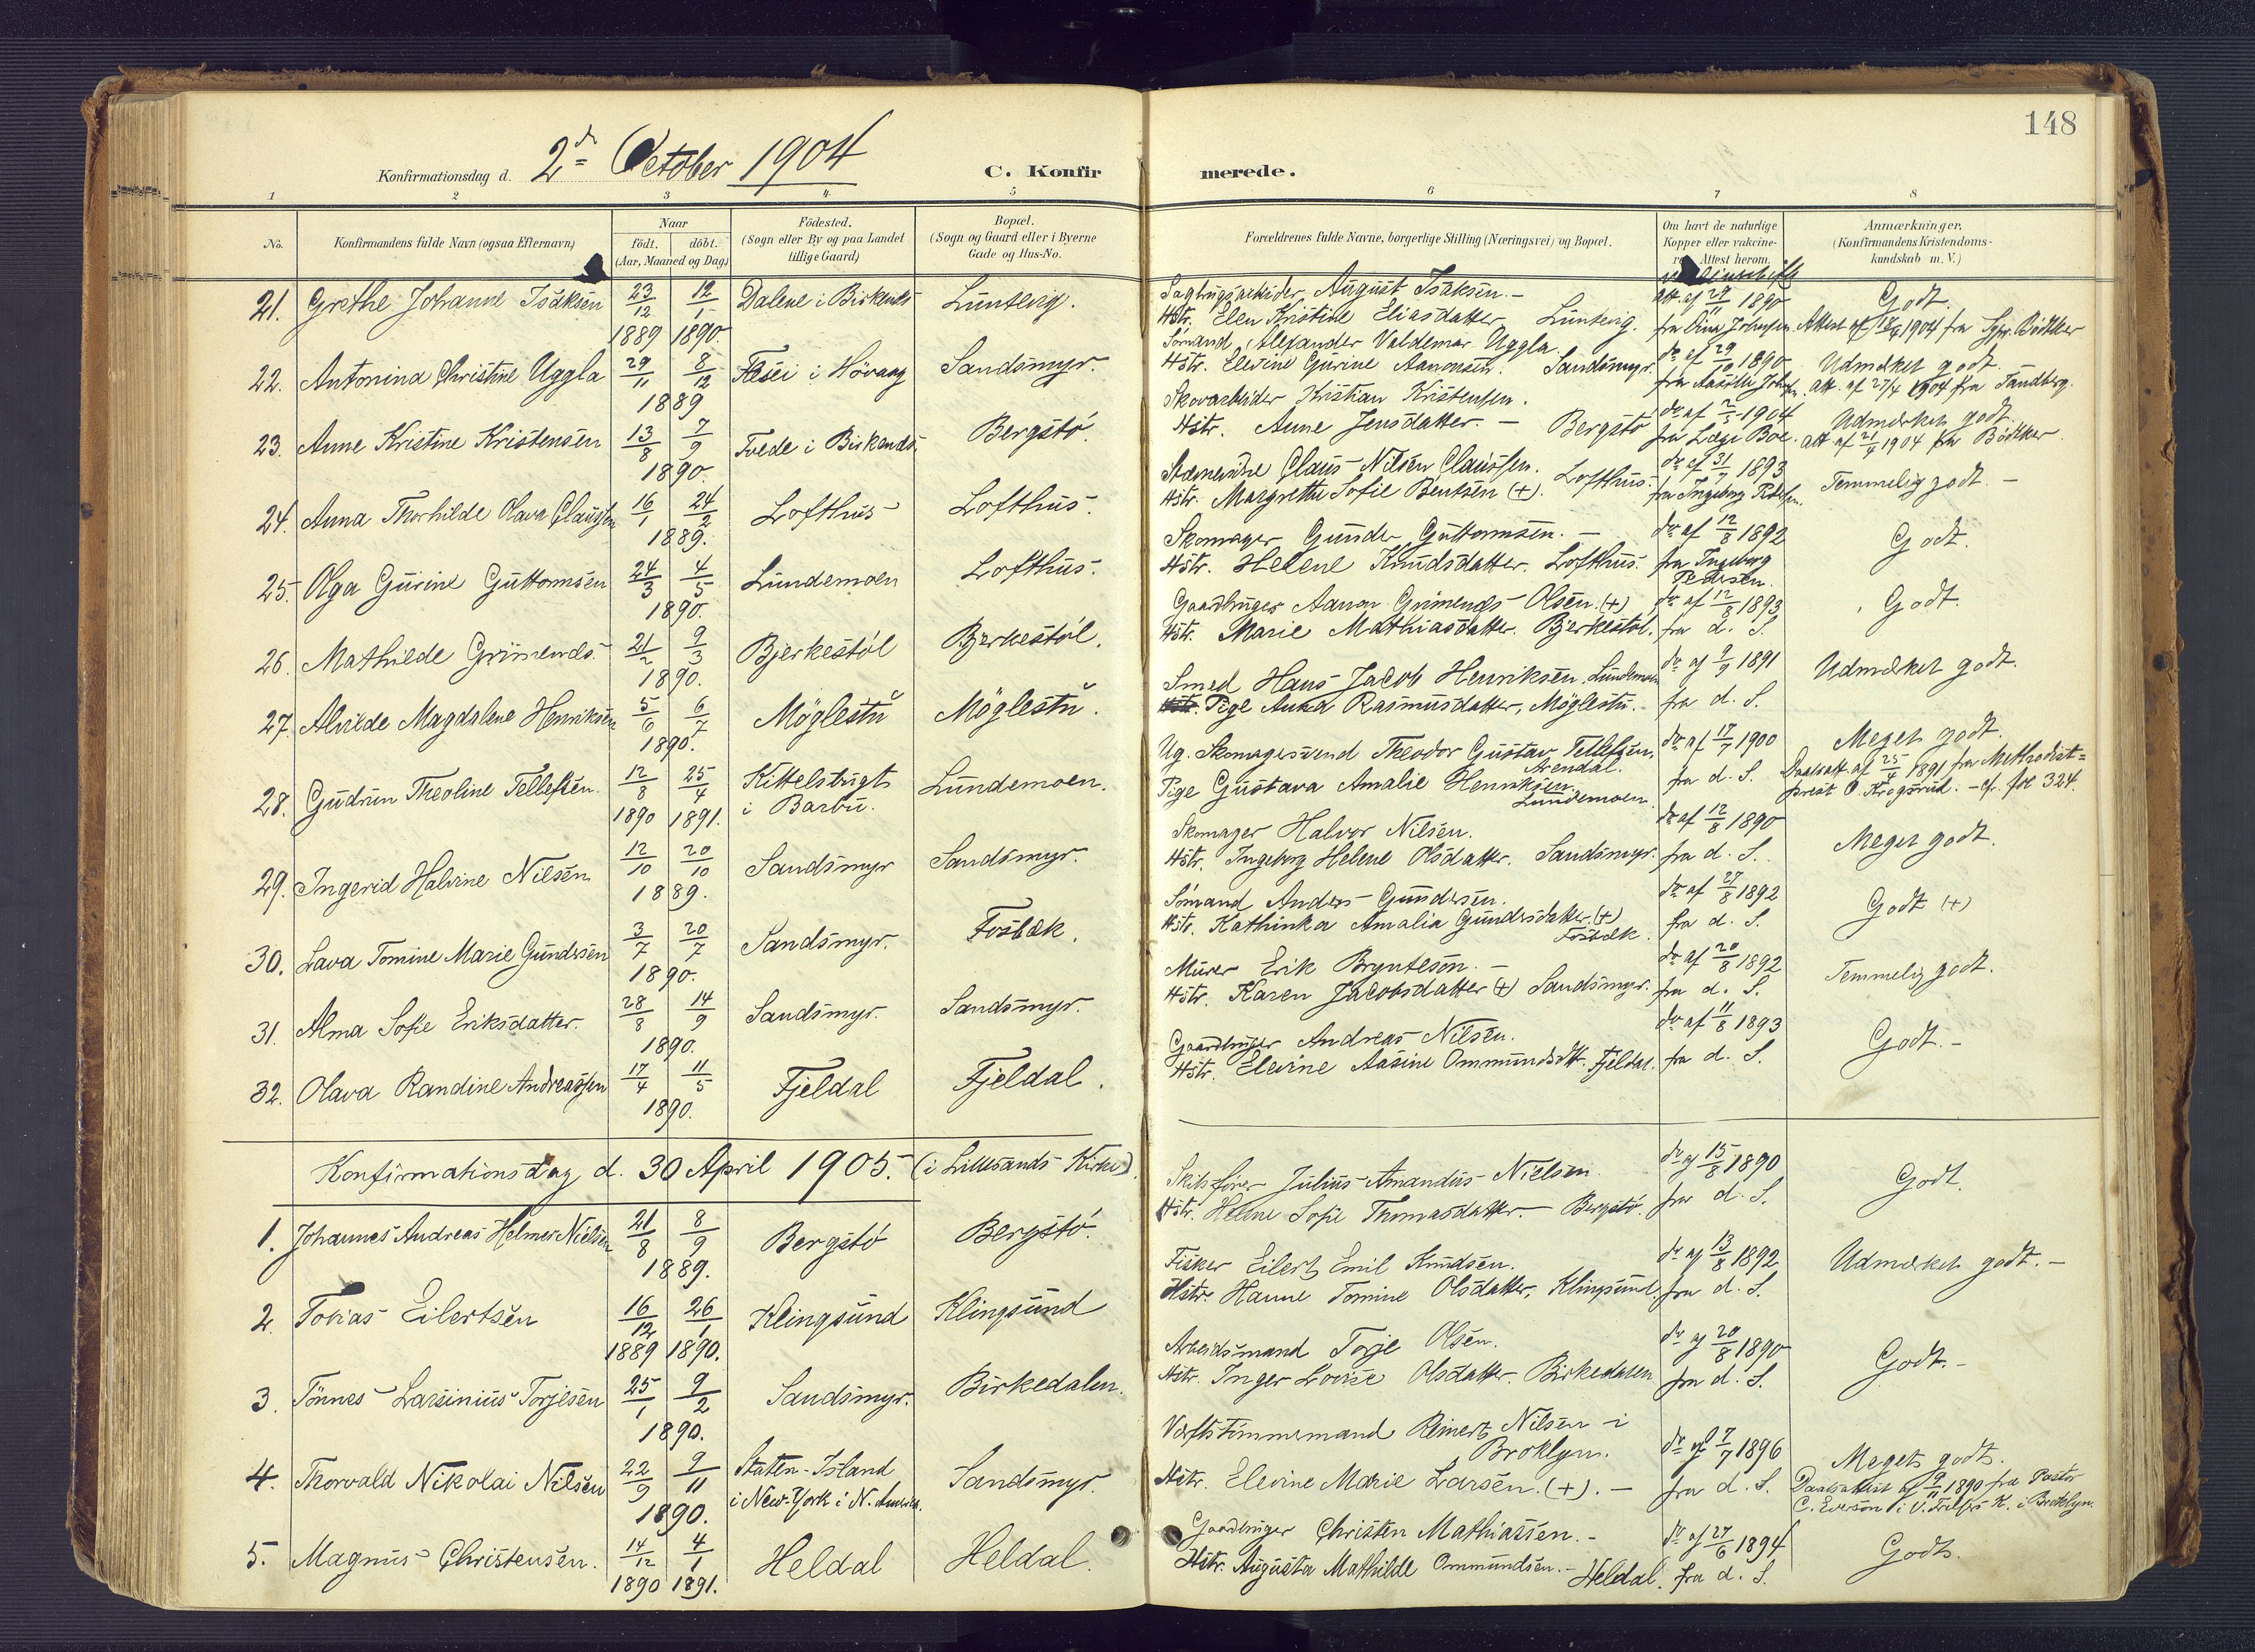 148
Konfirmationsdag d. 2den October 1904
C. Konfirmerede.
1 2 3 4 5 6 7 8
No.
Konfirmandens fulde Navn (ogsaa Efternavn)
Naar
födt. döbt.
(Aar, Maaned og Dag)
Födested.
(Sogn eller By og paa Landet
tillige Gaard)
Bopæl.
(Sogn og Gaard eller i Byerne
Gade og Hus-No.
Forældrenes fulde Navne, borgerlige Stilling (Næringsvei) og Bopæl.
Om havt de naturlige
Kopper eller vakcine-
Attest herom.
Anmærkninger.
(Konfirmandens Kristendoms-
kundskab m. V.)
21. Grethe Johanne Isaksen 23/12 1889 12/1 1890. Dalene i Birkenæs Luntevig.
August Isaksen.-
Hstr. Elen Kristine Eliasdatter Luntevig.
att. af 29/11 1890 fra Johnsen.
Godt.
Attest af 1904 fra Spr. Bödtker
22. Antonina Christine Uggla 29/11 8/12 1889 i Hövaag Sandsmyr.
Sömand Alexander Valdemar Uggla
Hstr. Elevine Gurine Aanonsen. Sandsmyr.
do af 29/10 1890
Udmærket godt.
att. af 27/4 1904 fra Tandberg.
23. Anne Kristine Kristensen 13/8 7/9 1890. Tvede i Birkenæs. Bergstö.
Skovarbeider Kristian Kristensen.
Hstr. Anne Jensdatter. - Bergstö
do af 1904 fra Læge Boe.
Udmærket godt.
att af 21/4 1904 fra Bödtker.
24. Anna Thorhilde Olava Claussen 16/1 24/2 1889. Lofthus Lofthus.
Claus Nilsen Claussen.
Hstr. Margrethe Sofie Bentsen (+). Lofthus.
do af 31/7 1893
fra Ingeborg Pedersen.
Temmelig godt. -
25. Olga Gurine Guttormsen 24/3 4/5 1890. Lundemoen Lofthus.
Skomager Gunder Guttormsen. -
Hstr. Helene Knudsdatter. Lofthus.
do af 12/8 1892
fra Ingeborg
Pedersen.
Godt.
26. Mathilde Grimends. 21/2 9/3 1890. Bjerkestöl Bjerkestöl.
Gaardbruger Aanon Grimends Olsen. (+)
Hstr. Marie Mathiasdatter. Bjerkestöl.
do af 12/8 1893
fra d. S.
Godt.
27. Alvilde Magdalene Henriksen 5/6 6/7 1890. Möglestu Möglestu.
Smed Hans Jacob Henriksen. Lundemoen
Pige Anna Rasmusdatter, Möglestu.-
do af 9/9 1891
fra d. S.
Udmærket godt.
28. Gudrun Theoline Tellefsen. 12/8 1890 25/4 1891. Kittelsbugt
i Barbu. Lundemoen.
Ug. Skomagersvend Theodor Gustav Tellefsen,
Arendal.
Pige Gustava Amalie Henriksen.
Lundemoen.
do af 17/7 1900
fra d. S.
Meget godt.
Daabsatt. af 25/4 1891 fra Methodist=
prest O. Krogsrud. - cfr. fol 324.
29. Ingerid Halvine Nilsen 12/10 20/10 1889. Sandsmyr Sandsmyr.
Skomager Halvor Nilsen.
Hstr. Ingeborg Helene Olsdatter. Sandsmyr.
do af 12/8 1890
fra d. S.
Meget godt.
30. Lava Tomine Marie Gundersen 3/7 20/7 1890. Sandsmyr. Fosbæk.
Sömand Anders Gundersen.
Hstr. Kathinka Amalia Gundersdatter (+)
Fosbæk.
do af 27/8 1892
fra d. S.
Godt (+)
31. Alma Sofie Eriksdatter. 28/8 14/9 1890. Sandsmyr. Sandsmyr.
Murer Erik Bryntesön. -
Hstr. Karen Jacobsdatter (+) Sandsmyr.
do af 20/8 1892
fra d. S.
Temmelig godt.
32. Olava Randine Andreassen 17/4 11/5 1890. Fjeldal Fjeldal.
Gaardbruger Andreas Nilsen.
Hstr. Elevine Aasine Ommundsdtr. Fjeldal.
do af 11/8 1893
fra d. S.
Godt. -
Konfirmationsdag d. 30 April 1905. (i Lillesands Kirke).
1. Johannes Andreas Helmer Nielsen 21/8 8/9 1889. Bergstö Bergstö.
Skibsförer Julius Amandus Nielsen
Hstr. Helene Sofie Thomasdatter. - Bergstö.
do af 15/8 1890
fra d. S.
Godt.
2. Tobias Eilertsen 16/12 1889 26/1 1890. Klingsund Klingsund
Fisker Eilert Emil Knudsen.
Hstr. Hanne Tomine Olsdatter, Klingsund.
do af 13/8 1892
fra d. S.
Udmærket godt. -
3. Tönnes Larsinius Torjesen 25/1 9/2 1890. Sandsmyr. Birkedalen.
Arbeidsmand Torje Olsen.
Hstr. Inger Lovise Olsdatter. Birkedalen
do af 20/8 1890
fra d. S.
Godt. -
4. Thorvald Nikolai Nilsen 22/9 9/11 1890. Staten-Island
i New-York i N. Amerika. Sandsmyr.
Værftstömmermand Reinert Nilsen i
Broklyn.
Hstr. Elevine Marie Larsen. (+). -
do af 7/7 1896
fra d. S.
Meget godt.
Daabsattest af 9/11 1890 fra Pastor
C. Everson i V. Frelsers K. i Broklyn.
5. Magnus Christensen. 14/12 1890 4/1 1891. Heldal Heldal.
Gaardbruger Christen Mathiassen. -
Hstr. Augusta Mathilde Ommundsen. - Heldal.
do af 27/6 1894
fra d. S.
Godt.